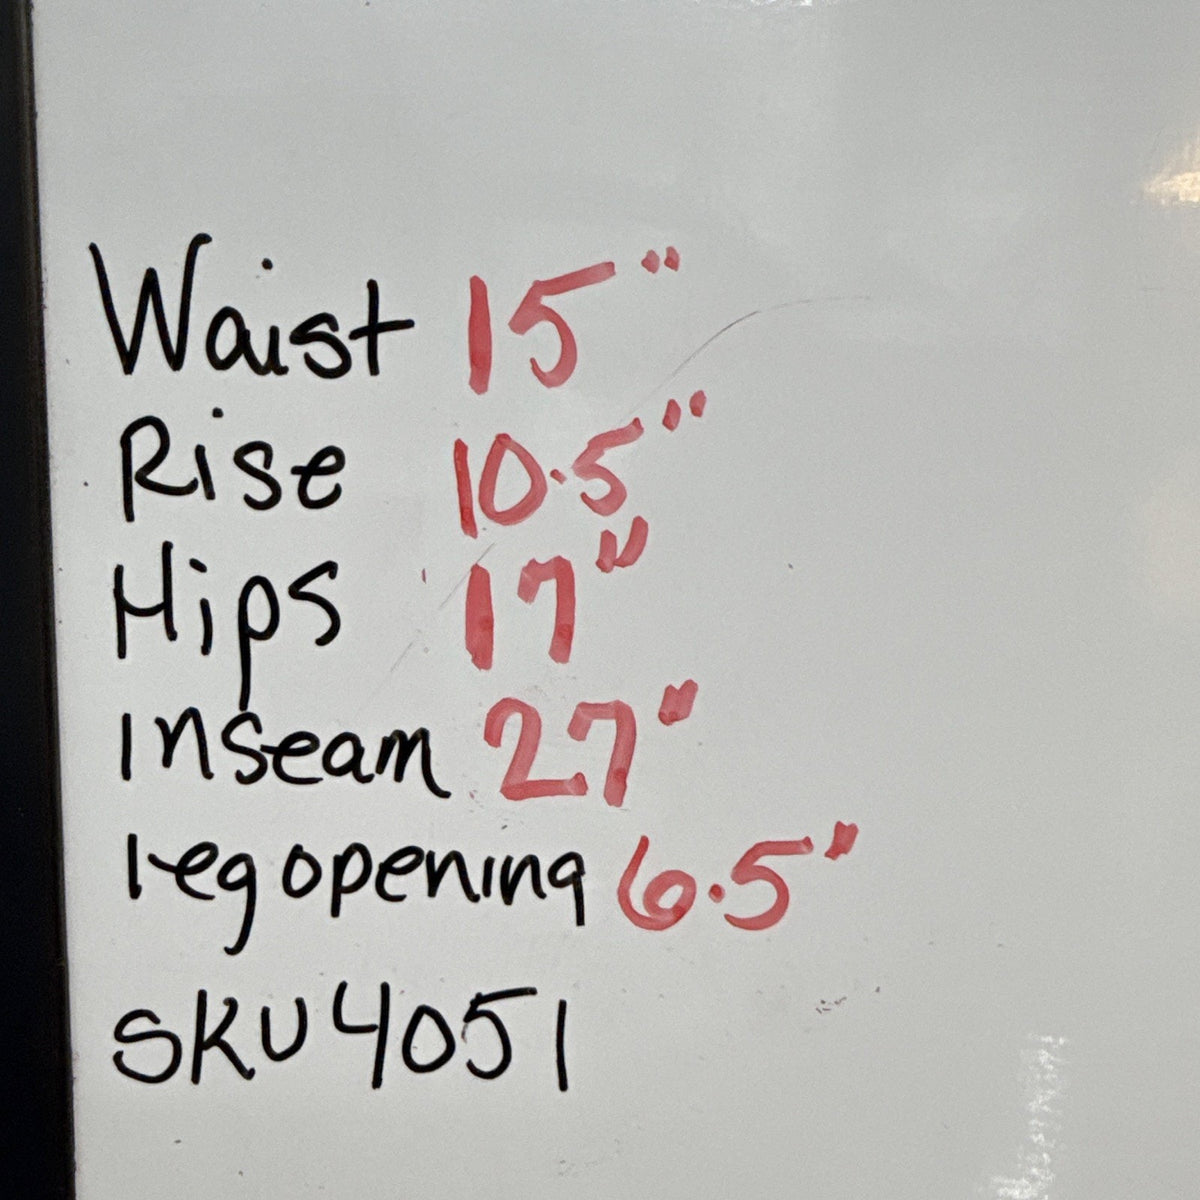 Waist 15"
Rise 10.5"
Hips 17"
Inseam 27"
leg opening 6.5"
SKU 4051